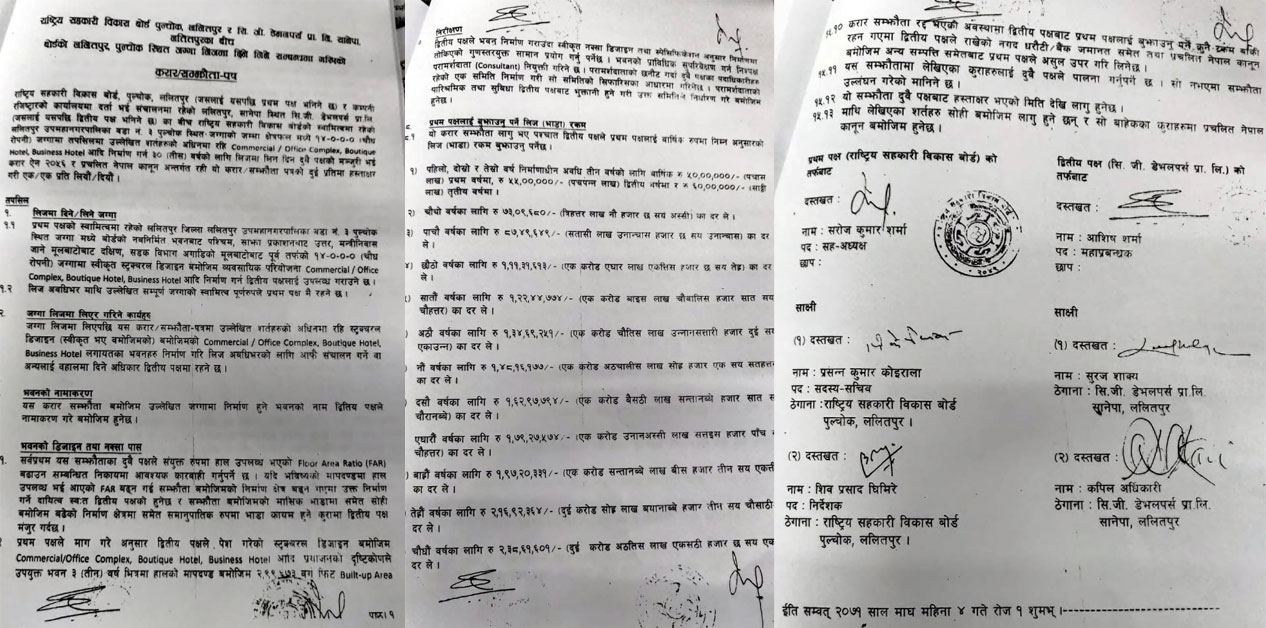 राष्ट्रिय सहकारी विकास बोर्ड पुल्चोक, ललितपुर र सि. जी. डेभलपर्स प्रा. लि. सानेपा,
ललितपुरका बीच
बोर्डको ललितपुर, पुल्चोक स्थित जग्गा लिजमा दिने लिने सम्बन्धमा गरिएको
करार/सम्झौता-पत्र
राष्ट्रिय सहकारी विकास बोर्ड, पुल्चोक, ललितपुर (जसलाई यसपछि प्रथम पक्ष भनिने छ) र कम्पनी
रजिष्टारको कार्यालयमा दर्ता भई संचालनमा रहेको ललितपुर, सानेपा स्थित सि.जी. डेभलपर्स प्रा.लि.
(जसलाई यसपछि द्वितीय पक्ष भनिने छ) का बीच राष्ट्रिय सहकारी विकास बोर्डको स्वामित्वमा रहेको
ललितपुर उपमहानगरपालिका वडा नं. ३ पुल्चोक स्थित जग्गाको जग्गा क्षेत्रफल मध्ये १४-०-०-० (चौध
रोपनी) जग्गामा तपसिलमा उल्लेखित शर्तहरुको अधिनमा रहि Commercial / Office Complex, Boutique
Hotel, Business Hotel आदि निर्माण गर्न ३० (तीस) वर्षको लागि लिजमा लिन दिन दुवै पक्षको मन्जुरी भई
करार ऐन २०५६ र प्रचलित नेपाल कानून अन्तर्गत रही यो करार/सम्झौता पत्रको दुई प्रतिमा हस्ताक्षर
गरी एक/एक प्रति लियौं/दियौं।
तपसिल
१. लिजमा दिने/लिने जग्गा
१.१ प्रथम पक्षको स्वामित्वमा रहेको ललितपुर जिल्ला ललितपुर उपमहानगरपालिका वडा नं. ३ पुल्चोक
स्थित जग्गा मध्ये बोर्डको नवनिर्मित भवनबाट पश्चिम, साझा प्रकाशनबाट उत्तर, मन्त्रीनिवास
जाने मूलबाटोबाट दक्षिण, सडक विभाग अगाडिको मूलबाटोबाट पूर्व तर्फको १४-०-०-० (चौध
रोपनी) जग्गामा स्वीकृत स्ट्रक्चरल डिजाइन बमोजिम व्यवसायिक परियोजना Commercial / Office
Complex, Boutique Hotel, Business Hotel आदि निर्माण गर्न द्वितीय पक्षलाई उपलब्ध गराउने छ।
१.२ लिज अवधिभर माथि उल्लेखित सम्पूर्ण जग्गाको स्वामित्व पूर्णरुपले प्रथम पक्ष मै रहने छ।
२ जग्गा लिजमा लिएर गरिने कार्यहरु
जग्गा लिजमा लिएपछि यस करार/सम्झौता-पत्रमा उल्लेखित शर्तहरुको अधिनमा रहि स्ट्रक्चरल
डिजाइन (स्वीकृत भए बमोजिमको) बमोजिमको Commercial / Office Complex, Boutique Hotel,
Business Hotel लगायतका भवनहरु निर्माण गरि लिज अवधिभरको लागि आफै संचालन गर्ने वा
अन्यलाई वहालमा दिने अधिकार द्वितीय पक्षमा रहने छ।
भवनको नामाकरण
यस करार सम्झौता बमोजिम उल्लेखित जग्गामा निर्माण हुने भवनको नाम द्वितिय पक्षले
नामाकरण गरे बमोजिम हुनेछ।
भवनको डिजाइन तथा नक्सा पास
१. सर्वप्रथम यस सम्झौताका दुवै पक्षले संयुक्त रुपमा हाल उपलब्ध भएको Floor Area Ratio (FAR)
बढाउन सम्बन्धित निकायमा आवश्यक कारवाही गर्नुपर्ने छ। यदि भविष्यको मापदण्डमा हाल
उपलब्ध भई आएको FAR बढ्न गई सम्झौता बमोजिमको निर्माण क्षेत्र बढ्न गएमा उक्त निर्माण
गर्ने दायित्व स्वतः द्वितीय पक्षको हुनेछ र सम्झौता बमोजिमको मासिक भाडामा समेत सोही
बमोजिम बढेको निर्माण क्षेत्रमा समेत समानुपातिक रुपमा भाडा कायम हुने कुरामा द्वितीय पक्ष
मंजुर गर्दछ।
प्रथम पक्षले माग गरे अनुसार द्वितीय पक्षले पेश गरेको स्ट्रक्चरल डिजाइन बमोजिम
Commercial/Office Complex, Boutique Hotel, Business Hotel आदि प्रयोजनको दृष्टिकोणले
उपयुक्त भवन ३ (तीन) वर्ष भित्रमा हालको मापदण्ड बमोजिम वर्ग फिट Built-up Area
निरीक्षण
द्वितीय पक्षले भवन निर्माण गराउदा स्वीकृत नक्सा डिजाइन तथा स्पेसिफिकेशन अनुसार निर्माणमा
तोकिएको गुणस्तरयुक्त सामान प्रयोग गर्नु पर्नेछ। भवनको प्राविधिक सुपरिवेक्षण गर्न निश्पक्ष
परामर्शदाता (Consultant) नियुक्ती गरिने छ। परामर्शदाताको छनौट गर्दा दुवै पक्षका पदाधिकारीहरु
रहेको एक समिति निर्माण गरी सो समितिको सिफारिसका आधारमा गरिनेछ। परामर्शदाताको
पारिश्रमिक तथा सुविधा द्वितीय पक्षबाट भुक्तानी हुने गरी उक्त समितिले निर्धारण गरे बमोजिम
हुनेछ।
प्रथम पक्षलाई बुझाउनु पर्ने लिज (भाडा) रकम
यो करार सम्झौता लागु भए पश्चात द्वितीय पक्षले प्रथम पक्षलाई बार्षिक रुपमा निम्न अनुसारको
लिज (भाडा) रकम बुझाउनु पर्नेछ।
१) पहिलो, दोस्रो र तेस्रो वर्ष निर्माणाधीन अवधि तीन वर्षको लागि बार्षिक रु ५०,००,०००/- (पचास
लाख) प्रथम वर्षमा, रु ५५,००,०००/- (पचपन्न लाख) द्वितीय वर्षमा र रु ६०,००,०००/- (साठ्ठी
लाख) तृतीय वर्षमा।
२) चौथो वर्षका लागि रु ७३,०९,६८०/- (त्रिहत्तर लाख नौ हजार छ सय अस्सी) का दर ले।
३) पाचौ वर्षका लागि रु ८७,४९,६४९/- (सतासी लाख उनान्चास हजार छ सय उनान्चास) का दर
ले।
४) छैठो वर्षका लागि रु १,११,३१,६१३/- (एक करोड एघार लाख एकत्तिस हजार छ सय तेह्र) का दर
ले।
सातौं वर्षका लागि रु १,२२,४४,७७४/- (एक करोड बाइस लाख चौवालिस हजार सात सय
चौहत्तर) का दर ले।
अठौ वर्षका लागि रु १,३४,६९,२५१/- (एक करोड चौतिस लाख उन्नानसत्तारी हजार दुई सय
एकाउन्न) का दर ले।
नौ वर्षका लागि रु १,४८,१६,१७७/- (एक करोड अठचालीस लाख सोह्र हजार एक सय सतहत्तर
का दर ले।
दसौ वर्षका लागि रु १,६२,९७,७९४/- (एक करोड बैसठी लाख सन्तानब्बे हजार सात स
चौरानब्बे) का दर ले।
एघारौ वर्षका लागि रु १,७९,२७,५७४/- (एक करोड उनानअस्सी लाख सत्ताइस हजार पाँच
चौहत्तर) का दर ले।
बाह्रौ वर्षका लागि रु १,९७,२०,३३१/- (एक करोड सन्तानब्बे लाख बीस हजार तीन सय एकती
का दर ले।
तेह्रौ वर्षका लागि रु २,१६,९२,३६४/- (दुई करोड सोह्र लाख बयानाब्बे हजार तीन सय चौसाठी
दर ले।
चौधौ वर्षका लागि रु २,३८,६१,६०१/- (दुई करोड अठतिस लाख एकसठी हजार छ सय एक
दर ले।
१५.१० करार सम्झौता रद्द भएको अवस्थामा द्वितीय पक्षबाट प्रथम पक्षलाई बुझाउनु पर्ने कुनै रकम बाँकी
रहन गएमा द्वितीय पक्षले राखेको नगद धरौटी/बैंक जमानत समेत तथा प्रचलित नेपाल कानून
बमोजिम अन्य सम्पत्ति समेतबाट प्रथम पक्षले असुल उपर गरि लिनेछ।
१५.११ यस सम्झौतामा लेखिएका कुराहरुलाई दुवै पक्षले पालना गर्नुपर्ने छ। सो नभएमा सम्झौता
उल्लंघन गरेको मानिने छ।
१५.१२ यो सम्झौता दुवै पक्षबाट हस्ताक्षर भएको मिति देखि लागु हुनेछ।
१५.१३ माथि लेखिएका शर्तहरु सोही बमोजिम लागु हुने छन् र सो बाहेकका कुराहरुमा प्रचलित नेपाल
कानून बमोजिम हुनेछ।
प्रथम पक्ष (राष्ट्रिय सहकारी विकास बोर्ड) को
तर्फबाट
दस्तखत :
नाम : सरोज कुमार शर्मा
पद : सह-अध्यक्ष
छाप :
द्वितीय पक्ष (सि. जी. डेभलपर्स प्रा. लि.) को
तर्फबाट
दस्तखत :
नाम : आशिष शर्मा
पद : महाप्रबन्धक
छाप :
साक्षी
(१) दस्तखत :
नाम : प्रसन्न कुमार कोइराला
पद : सदस्य-सचिव
ठेगाना : राष्ट्रिय सहकारी विकास बोर्ड
पुल्चोक, ललितपुर।
(२) दस्तखत :
नाम : शिव प्रसाद घिमिरे
पद : निर्देशक
ठेगाना : राष्ट्रिय सहकारी विकास बोर्ड
पुल्चोक, ललितपुर।
साक्षी
(१) दस्तखत :
नाम : सुरज शाक्य
ठेगाना : सि.जी. डेभलपर्स प्रा.लि.
सानेपा, ललितपुर
(२) दस्तखत :
नाम : कपिल अधिकारी
ठेगाना : सि.जी. डेभलपर्स प्रा.लि.
सानेपा, ललितपुर
ईति सम्वत् २०७१ साल माघ महिना ४ गते रोज १ शुभम्।